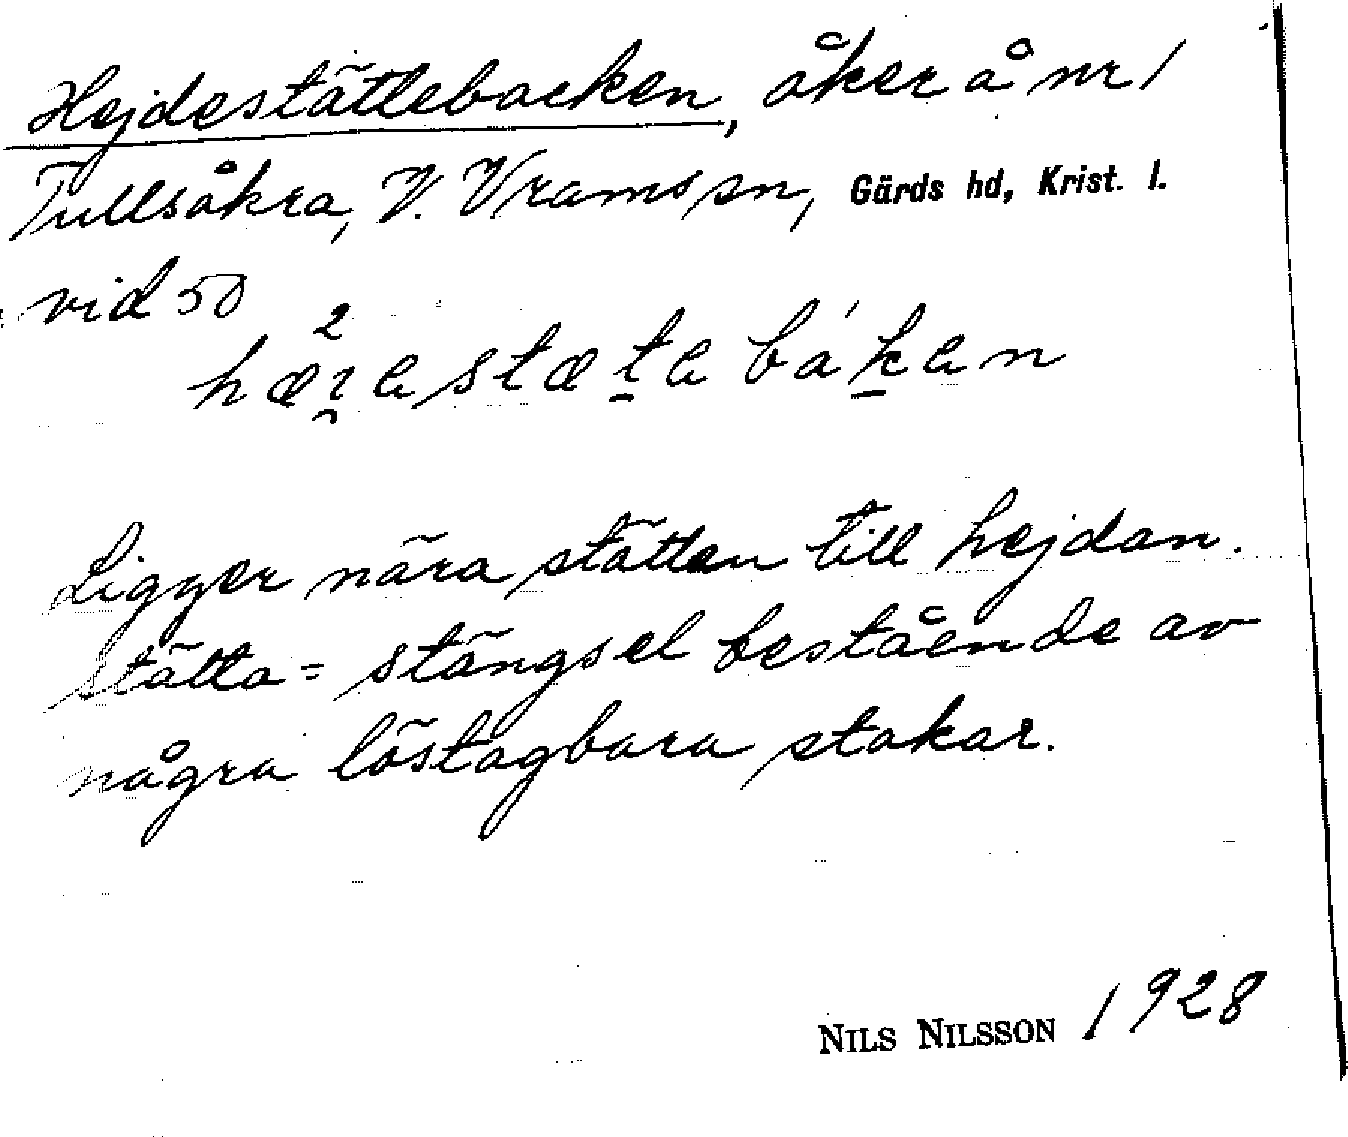 Hejdestättebacken, åker å nr 1
Tullsåkra, V. Vrams sn, Gärds hd, Krist. l.
vid 50
Ligger nära stätten till hejdan.
Stätta = stängsel bestående av
några löstagbara stakar.
NILS NILSSON 1928